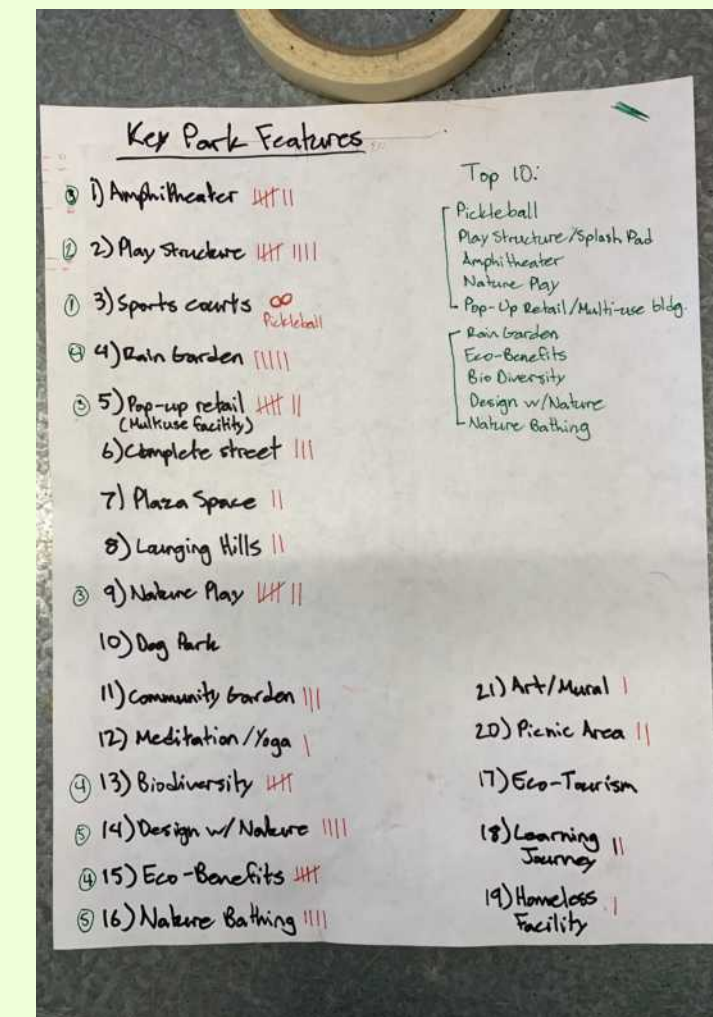 Key Park Features
③ 1) Amphitheater 卌 ||
② 2) Play Structure 卌 ||||
① 3) Sports courts ∞
Pickleball
④ 4) Rain Garden |||||
③ 5) Pop-up retail 卌 ||
(Multiuse facility)
6) Complete street |||
7) Plaza Space ||
8) Lounging Hills ||
③ 9) Nature Play 卌 ||
10) Dog Park
11) Community Garden |||
12) Meditation/Yoga |
④ 13) Biodiversity 卌
⑤ 14) Design w/ Nature ||||
④ 15) Eco-Benefits 卌
⑤ 16) Nature Bathing ||||
Top 10:
Pickleball
Play Structure/Splash Pad
Amphitheater
Nature Play
Pop-Up Retail/Multi-use bldg.
Rain Garden
Eco-Benefits
Bio Diversity
Design w/Nature
Nature Bathing
21) Art/Mural |
20) Picnic Area ||
17) Eco-Tourism
18) Learning ||
Journey
19) Homeless |
Facility